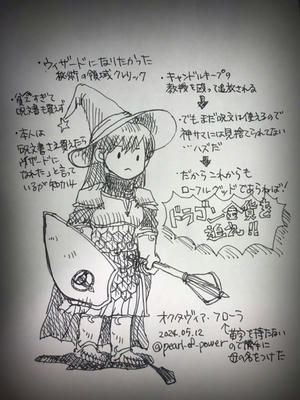 ・ウィザードになりたかった
秘術の領域クレリック
・貧乏すぎて
呪文書も買えず
・本人は
呪文書さえ買えたら
ウィザードに
なれた」と言って
いるが知力が4
・キャンドルキープの
教授を殴って追放される
でもまだ呪文は使えるので
神サマには見捨てられてない
…ハズだ
だからこれからも
ローフルグッドであらねば!
ドラゴン金貨を
追え!!
オクタヴィア・フローラ
2024.05.12
@pearl_of_power
苗字を持たない
ので勝手に
母の名をつけた